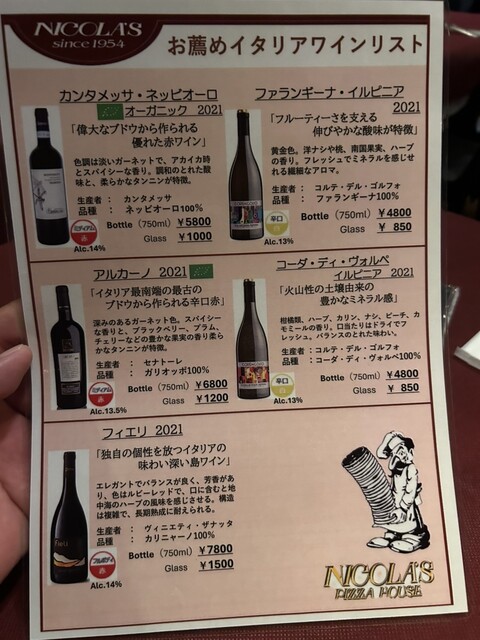 NICOLA'S
since 1954
お薦めイタリアワインリスト
カンタメッサ・ネッビオーロ
オーガニック 2021
「偉大なブドウから作られる
優れた赤ワイン」
色調は淡いガーネットで、アカイカ時
とスパイシーな香り。調和のとれた酸
味と、柔らかなタンニンが特徴。
生産者 : カンタメッサ
品種 : ネッビオーロ100%
Bottle (750ml) ¥5800
Glass ¥1000
ミディアム
赤
Alc.14%
ファランギーナ・イルピニア
2021
「フルーティーさを支える
伸びやかな酸味が特徴」
黄金色。洋ナシや桃、南国果実、ハーブ
の香り。フレッシュでミネラルを感じせ
れる繊細なアロマ。
生産者 : コルテ・デル・ゴルフォ
品種 : ファランギーナ100%
Bottle (750ml) ¥4800
Glass ¥ 850
辛口
白
Alc.13%
アルカーノ 2021
「イタリア最南端の最古の
ブドウから作られる辛口赤」
深みのあるガーネット色。スパイシー
な香りと、ブラックベリー、プラム、
チェリーなどの豊かな果実の香り柔ら
かなタンニンが特徴。
生産者 : セナトーレ
品種 : ガリオッポ100%
Bottle (750ml) ¥6800
Glass ¥1200
ミディアム
赤
Alc.13.5%
コーダ・ディ・ヴォルペ
イルピニア 2021
「火山性の土壌由来の
豊かなミネラル感」
柑橘類、ハーブ、カリン、ナシ、ピーチ、カ
モミールの香り。口当たりはドライでフ
レッシュ。バランスのとれた味わい。
生産者 : コルテ・デル・ゴルフォ
品種 : コーダ・ディ・ヴォルペ100%
Bottle (750ml) ¥4800
Glass ¥ 850
辛口
白
Alc.13%
フィエリ 2021
「独自の個性を放つイタリアの
味わい深い島ワイン」
エレガントでバランスが良く、芳香があ
り、色はルビーレッドで、口に含むと地
中海のハーブの風味を感じさせる。構造
は複雑で、長期熟成に耐えられる。
生産者 : ヴィニエティ・ザナッタ
品種 : カリニャーノ100%
Bottle (750ml) ¥7800
Glass ¥1500
フルボディ
赤
Alc.14%
NICOLA'S
PIZZA HOUSE